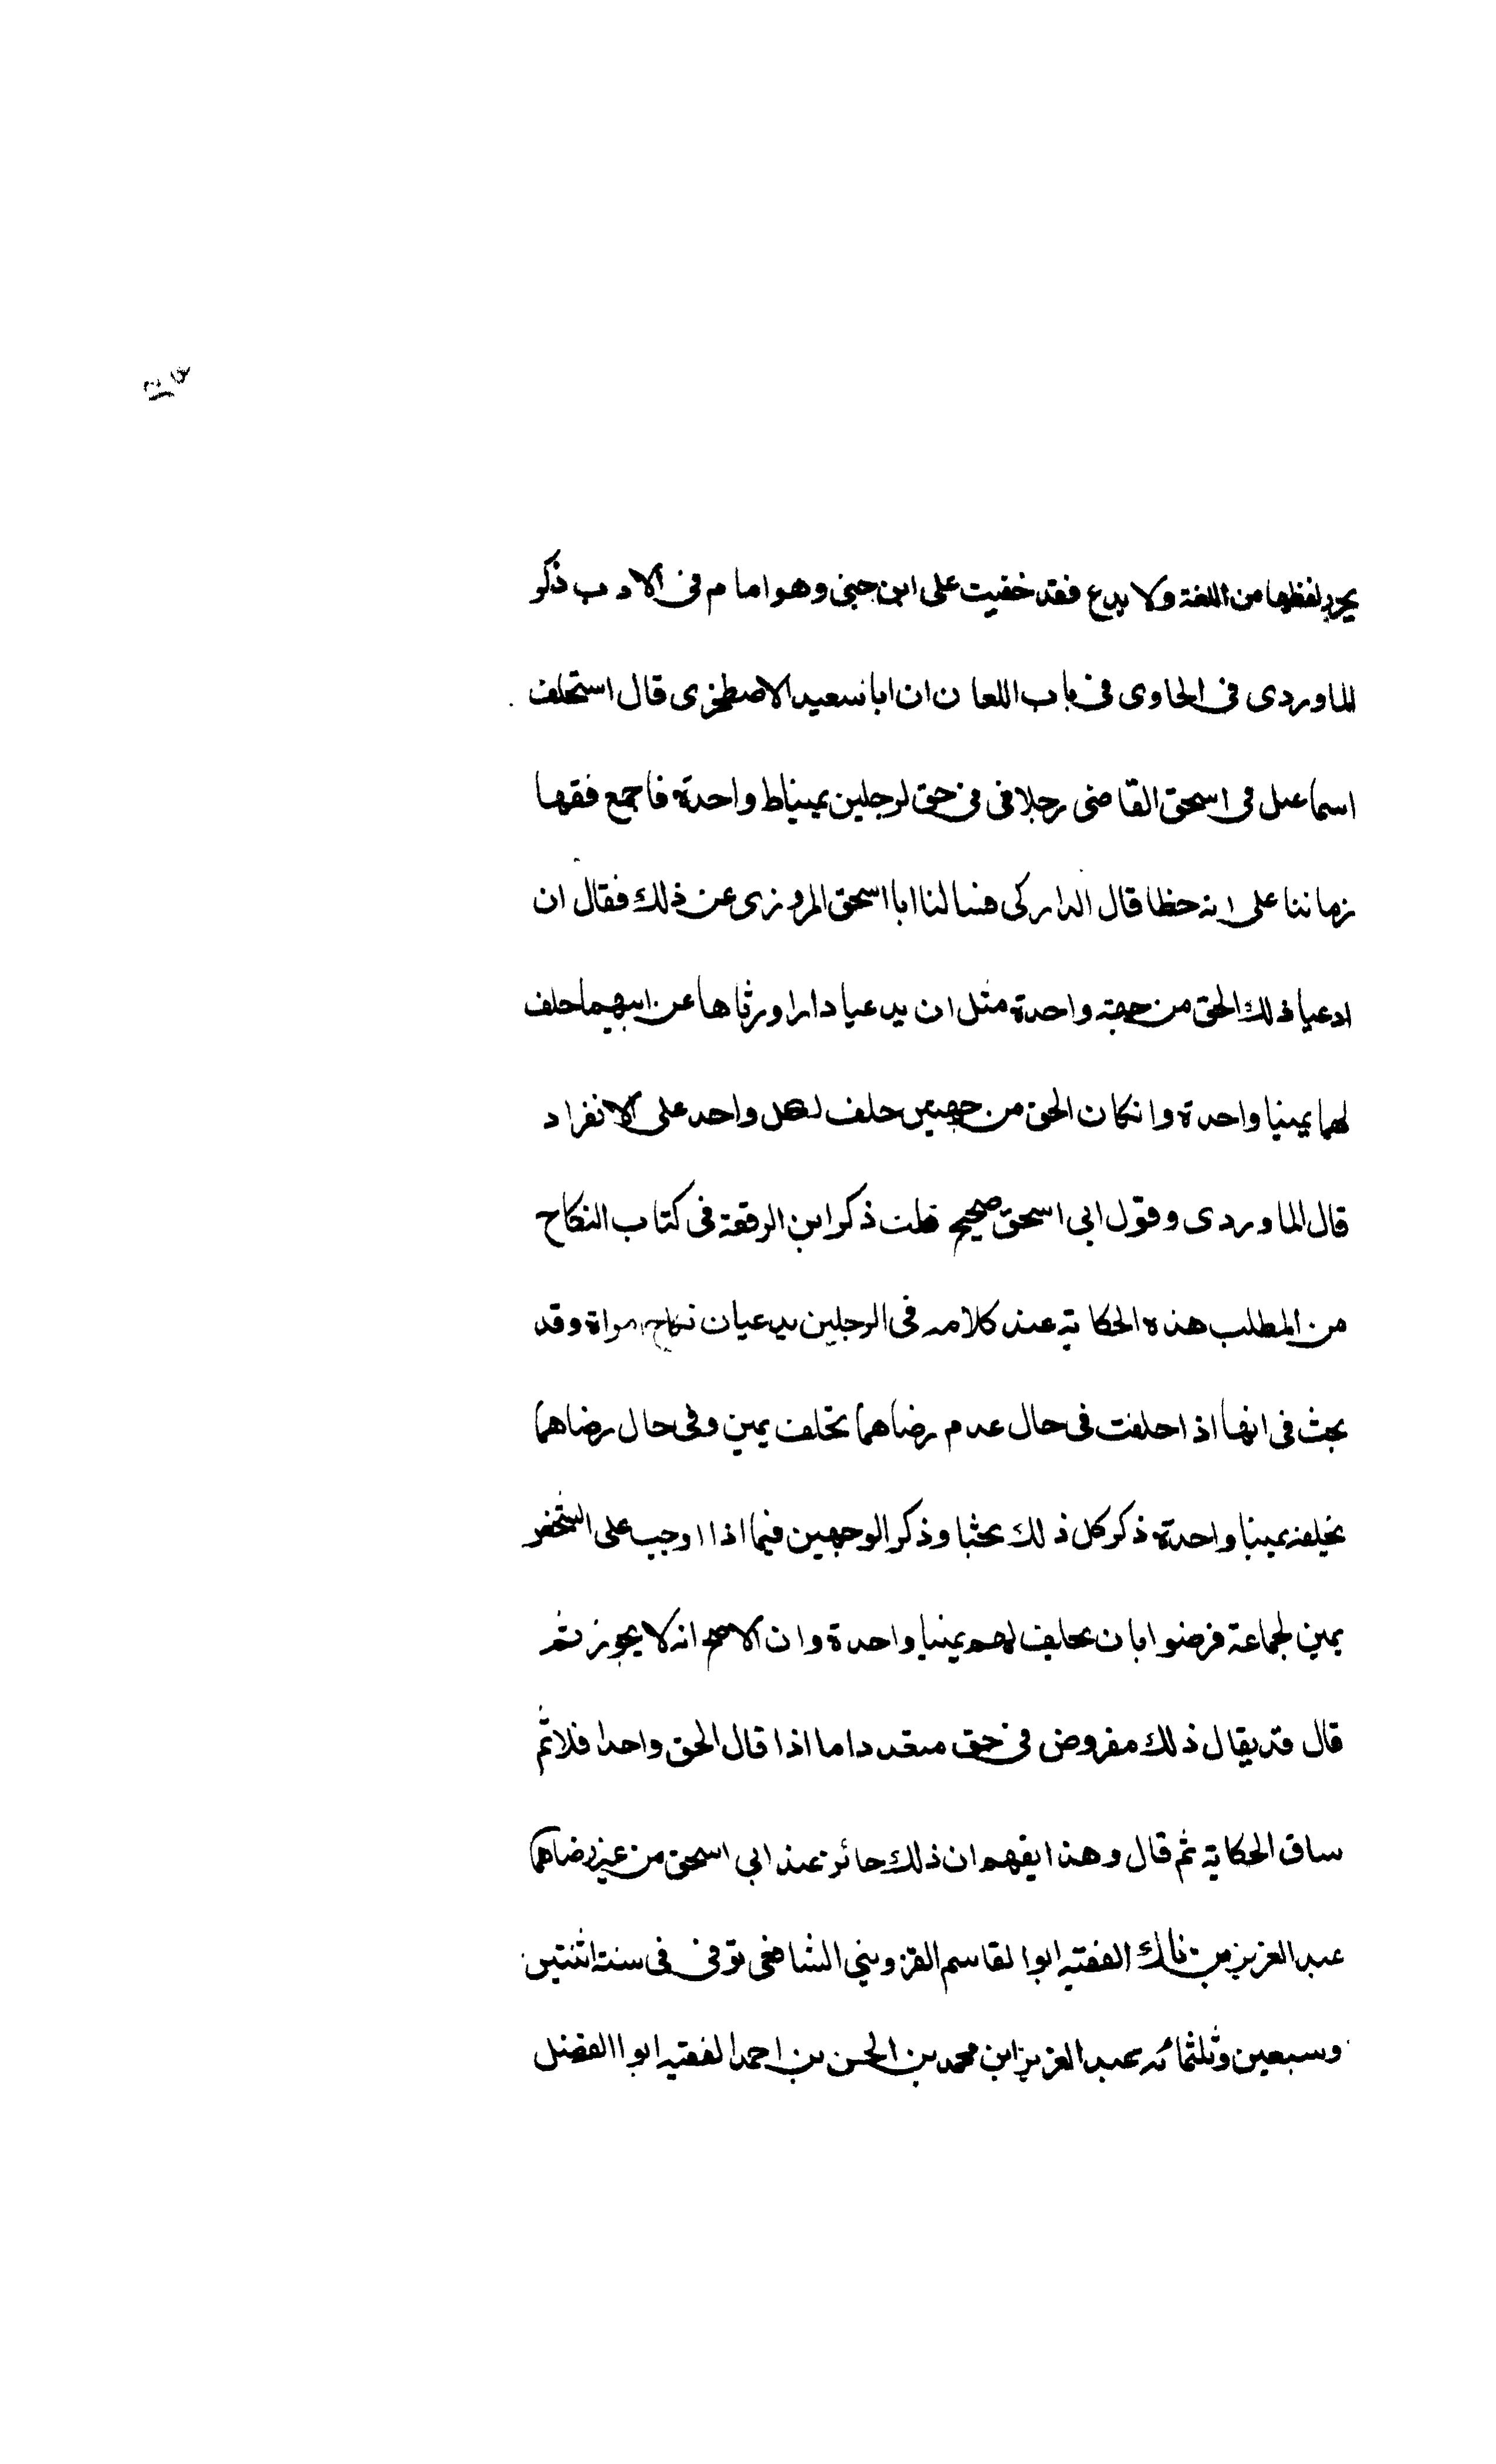 يحرر لفظها من اللغة ولا بدع فقد خفيت على ابن جني وهو امام في الادب ذكر
الماوردى في الحاوى في باب اللعان ان ابا سعيد الاصطخرى قال استحلف
اسماعيل فى اسحق القاضى رجلا فى في حق لرجلين يميناط واحدة فاجمع فقها
زماننا على انه خطا قال الداركى فسالنا ابا اسحق المروزى عن ذلك فقال ان
ادعيا ذلك الحق من جهة واحدة مثل ان يدعيا دارا ورثاها عن ابيهما حلف
لهما يمينا واحدة وانكان الحق من جهتين حلف لكل واحد على الانفراد
قال الماوردى وقول ابى اسحق صحيح قلت ذكر ابن الرفعة فى كتاب النكاح
من المطلب هذه الحكاية عند كلامه فى الرجلين يدعيان نكاح امراة وقد
بحث فى انها اذا حلفت فى حال عدم رضاهما تحلف يمين وفى حال رضاهما
يمينا واحدة ذكر كل ذلك بحثا وذكر الوجهين فيما اذا اوجب على
يمين لجماعة فرضوا بان يحلف لهم يمينا واحدة وان الاصح انه لا يجوز ثم
قال قد يقال ذلك مفروض في حق متعدد اما اذا قال الحق واحدا فلا ثم
ساق الحكاية ثم قال وهذا يفهم ان ذلك جائز عند ابي اسحق من غير رضاهما
عبد العزيز بن الفقيه ابوا لقاسم القزويني الشافعى توفي فى سنة اثنتين
وسبعين وثلثمائه عبد العزيز ابن محمد بن الحسن بن احمد الفقيه ابوا الفضل